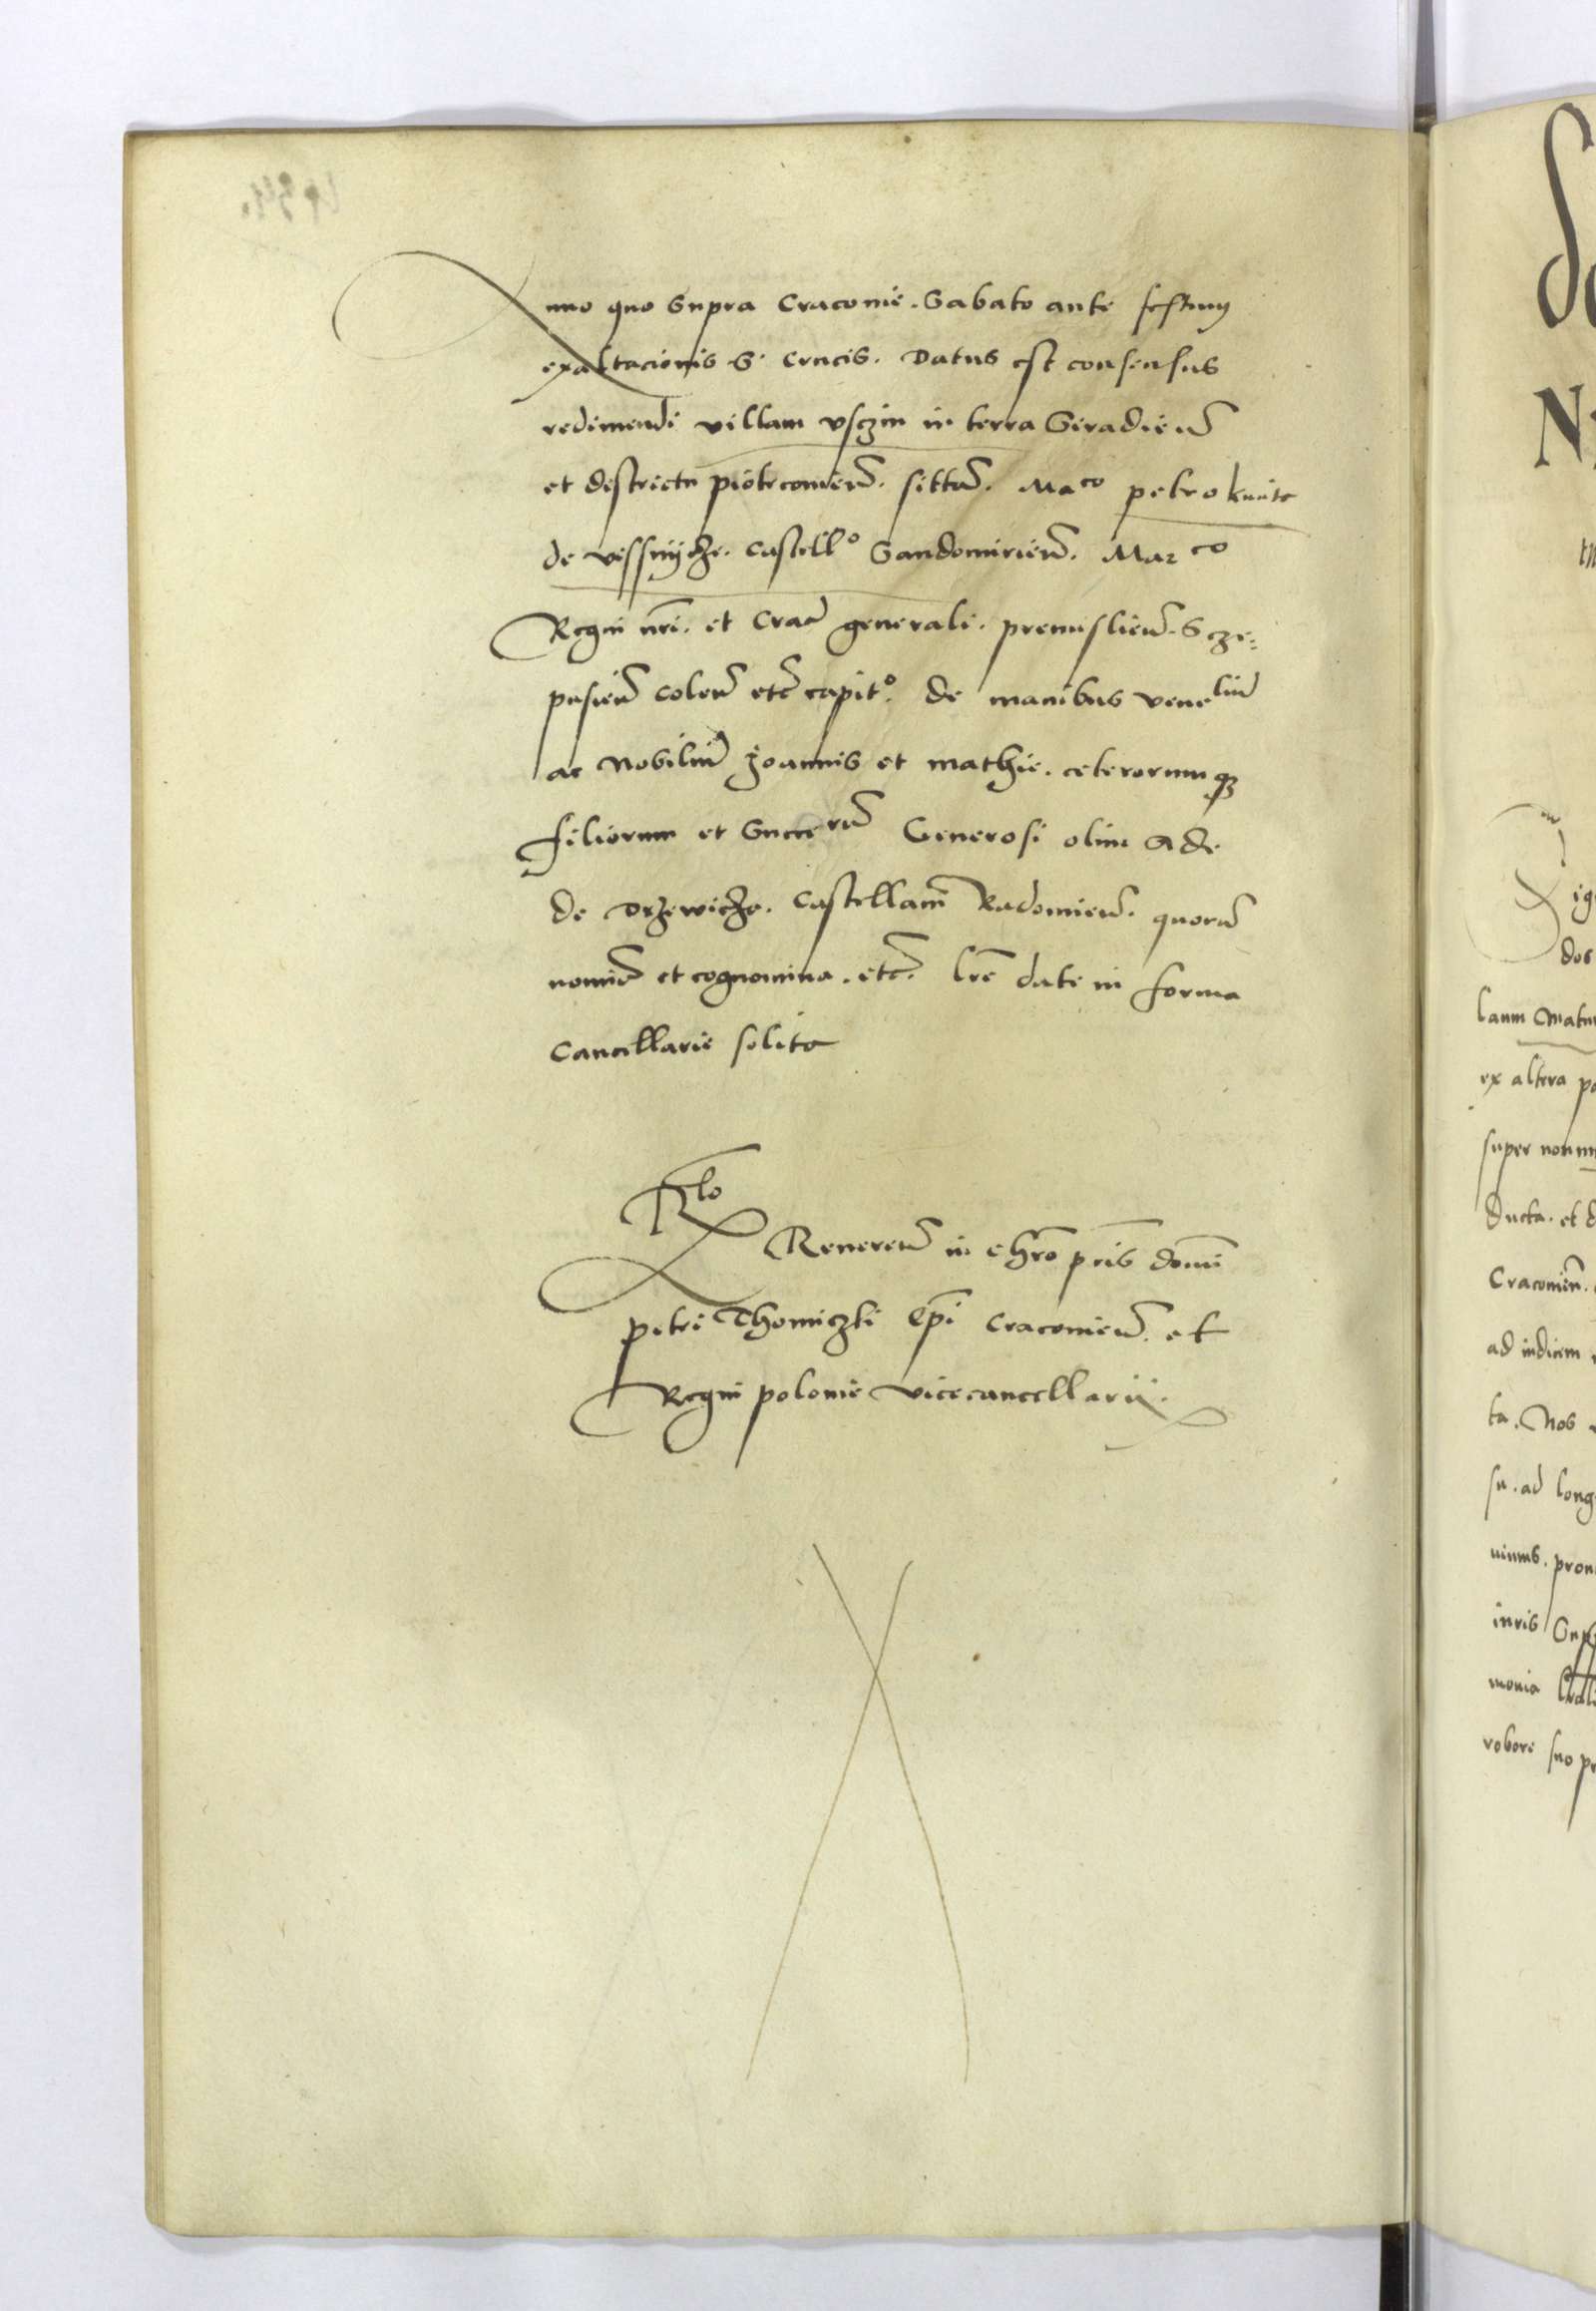 Anno quo Supra Cracovie. Sabato ante festum
exaltacionis S. Crucis. Datus est consensus
redimendi villam vsczin in terra Siradien̄
et districtu piotrcovien̄. sittam̄. Maco petro kmite
de vissnijcze. Castellº Sandomirien̄. Marco
Regni nr̄i. et Crac̄ generali. premislien̄. Scze=
pusien̄ Colen̄ etc̄ capitº. de manibus venelium̄
ac Nobilium̄ Joannis et mathie. ceterorumqȝ
filiorum et Succerum̄ Generosi olim Ade
de Drzewicze. Castellani Radomien̄. quorum̄
nomina et cognomina. etc̄. lr̄e date in forma
Cancellarie solita
Rlo
Reveren̄ in chr̄o pr̄is domini
petri Thomiczki Ep̄i Cracovien̄. et
Regni polonie vicecancellarij.
ig
dos
laum Matu
ex altera pa
super nonnu
ducta. et d
Cracovien̄.
ad iudicem
ta. Nos
su. ad long
uimus. pron
iuris Supp
monia
robore suo pr